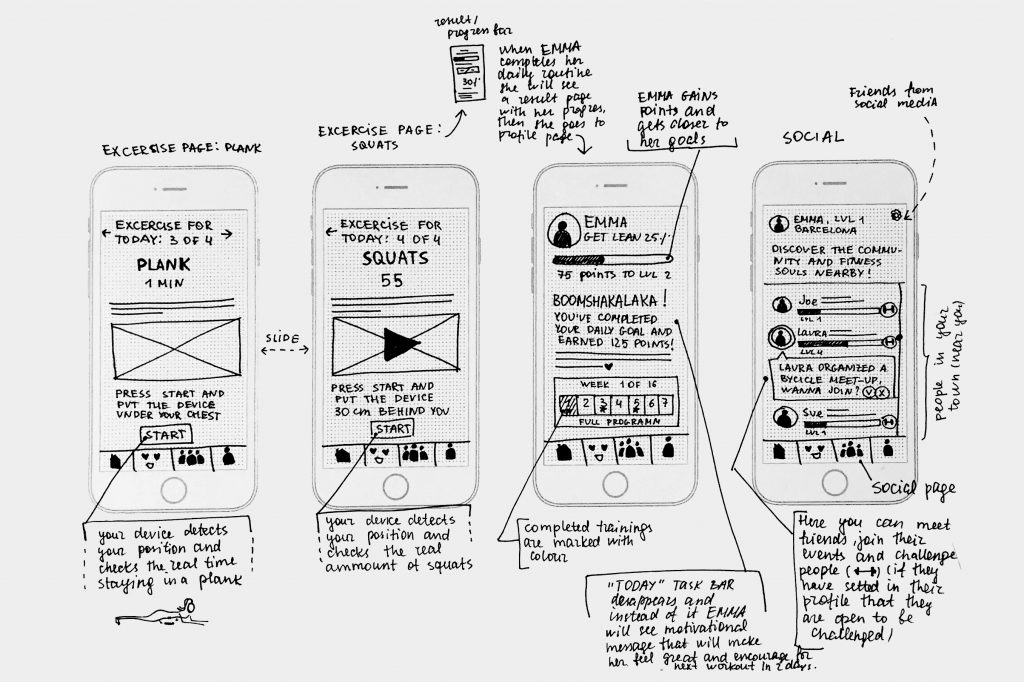 result/
progress bar
30%
When EMMA
completes her
daily routine
she will see
a result page
with her progres,
then she goes to
profile page
EXCERCISE PAGE: PLANK
EXCERCISE FOR
TODAY: 3 OF 4
PLANK
1 MIN
PRESS START AND
PUT THE DEVICE
UNDER YOUR CHEST
START
your device detects
your position and
checks the real time
staying in a plank
SLIDE
EXCERCISE PAGE:
SQUATS
EXCERCISE FOR
TODAY: 4 OF 4
SQUATS
55
PRESS START AND
PUT THE DEVICE
30 cm BEHIND YOU
START
your device detects
your position and
checks the real
ammount of squats
EMMA GAINS
points and
gets closer to
her goals
EMMA
GET LEAN 25%
75 POINTS TO LVL 2
BOOMSHAKALAKA!
YOU'VE COMPLETED
YOUR DAILY GOAL AND
EARNED 125 POINTS!
WEEK 1 OF 16
1 2 3 4 5 6 7
FULL PROGRAMM
completed trainings
are marked with
colour
"TODAY" TASK BAR
desappears and
instead of it EMMA
will see motivational
message that will make
her feel great and encourage for
next workout in 2 days.
SOCIAL
Friends from
social media
EMMA, LVL 1
BARCELONA
DISCOVER THE COMMU-
NITY AND FITNESS
SOULS NEARBY!
Joe
LVL 1
LAURA
LVL 4
LAURA ORGANIZED A
BYCICLE MEET-UP,
WANNA JOIN? V X
Sue
LVL 1
people in your
town (near you)
Social page
Here you can meet
friends, join their
events and challenge
people ( ) (if they
have setted in their
profile that they
are open to be
challenged)